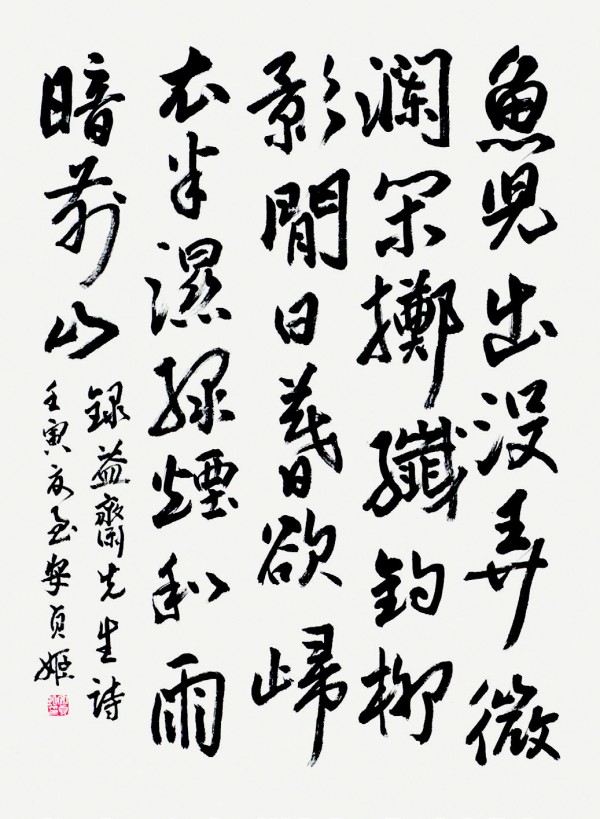 魚兒出沒弄微
瀾閑擲纖鈎柳
影閒日暮欲歸
衣半濕綠煙和雨
暗前山
錄益齋先生詩
壬寅夏至安貞姬